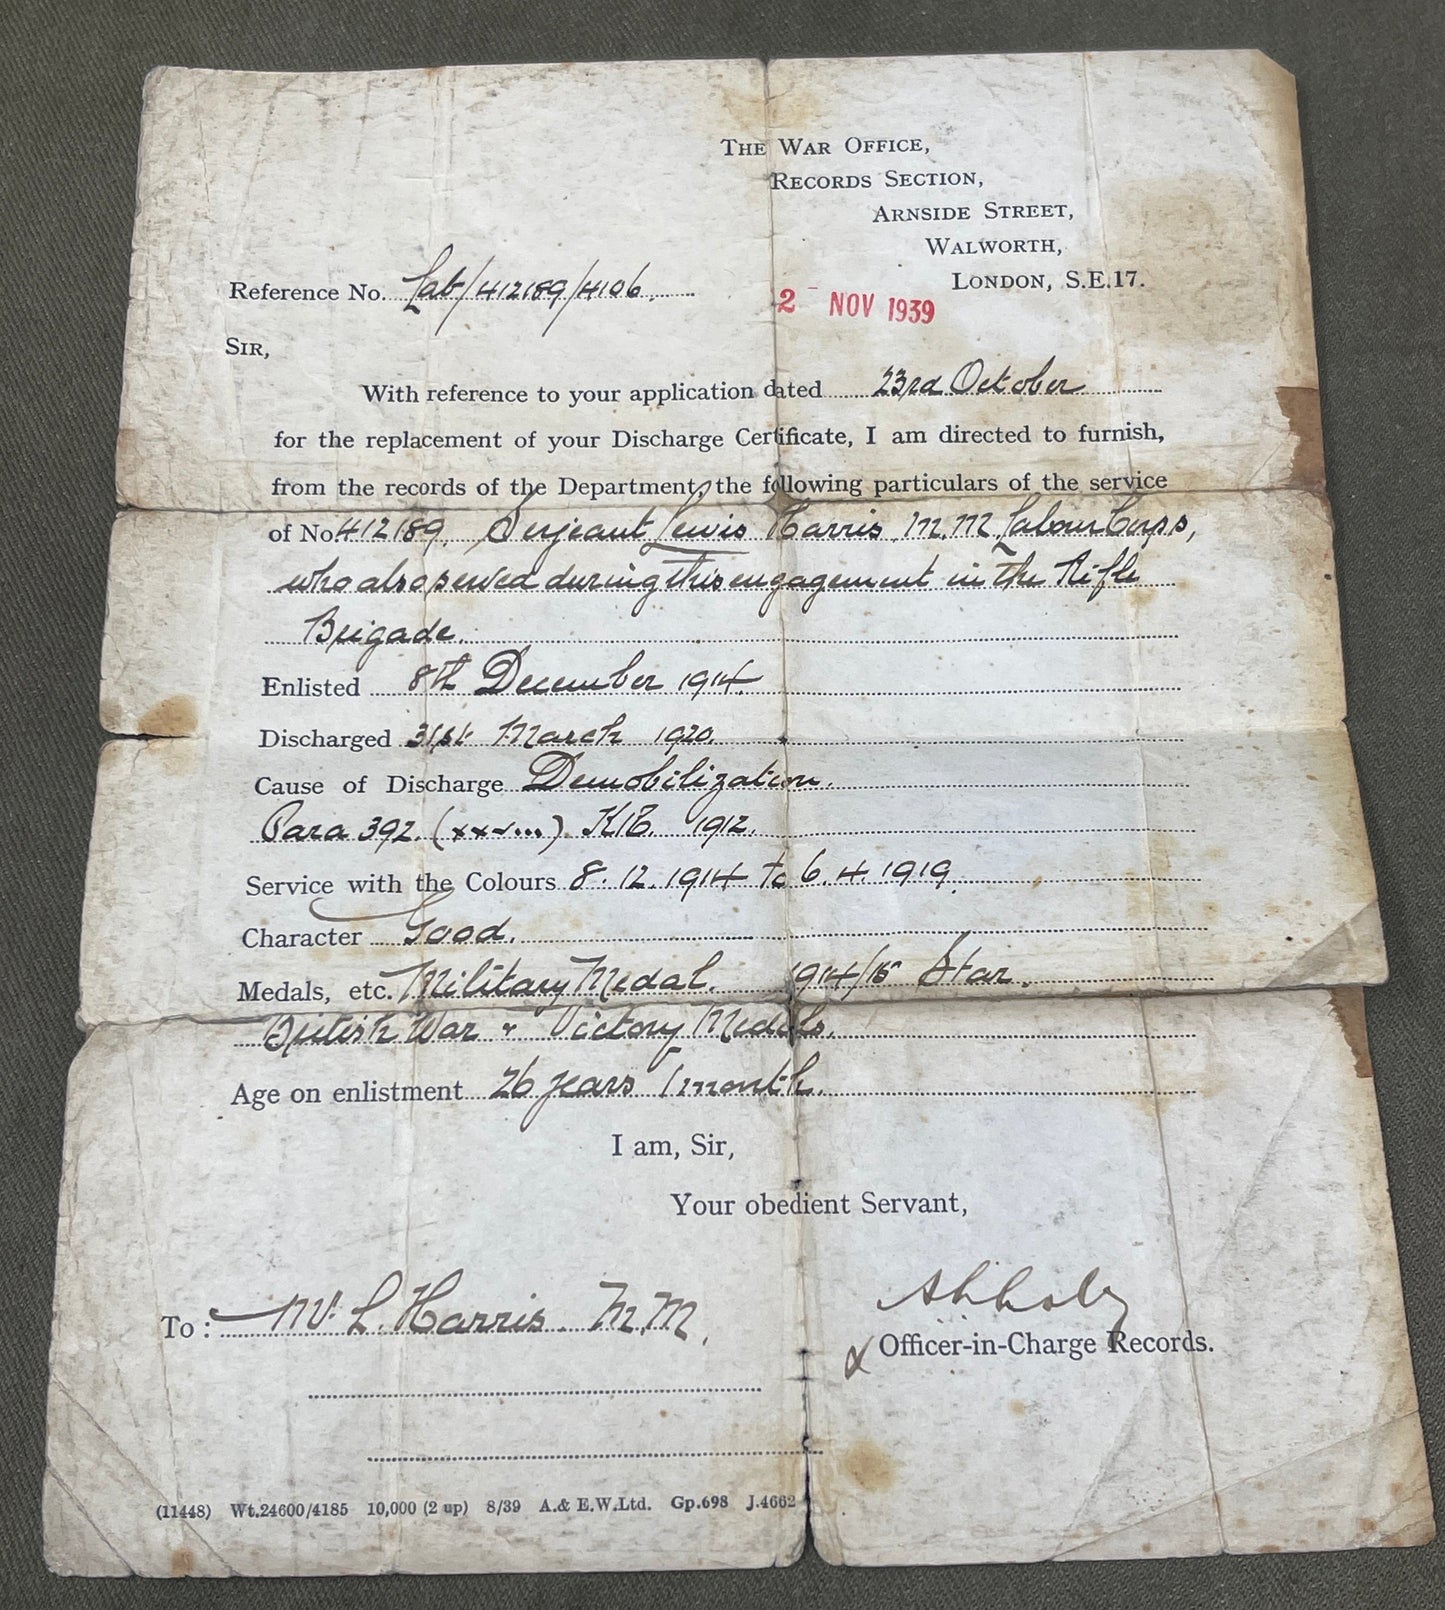 THE WAR OFFICE,
RECORDS SECTION,
ARNSIDE STREET,
WALWORTH,
LONDON, S.E.17.
Reference No. Lab/412189/4106.
2 - NOV 1939
SIR,
With reference to your application dated 23rd October
for the replacement of your Discharge Certificate, I am directed to furnish,
from the records of the Department, the following particulars of the service
of No 412189. Serjeant Lewis Harris. M.M. Labour Corps,
who also served during this engagement in the Rifle
Brigade.
Enlisted 8th December 1914.
Discharged 31st March 1920.
Cause of Discharge Demobilization.
Para 392. (xxv...). KR. 1912.
Service with the Colours 8.12.1914 to 6.4.1919.
Character Good.
Medals, etc. Military Medal. 1914/15 Star.
British War & Victory Medals.
Age on enlistment 26 years 1 month.
I am, Sir,
Your obedient Servant,
To: Mr. L. Harris. M.M.
Officer-in-Charge Records.
(11448) Wt.24600/4185 10,000 (2 up) 8/39 A.& E.W.Ltd. Gp.698 J.4662